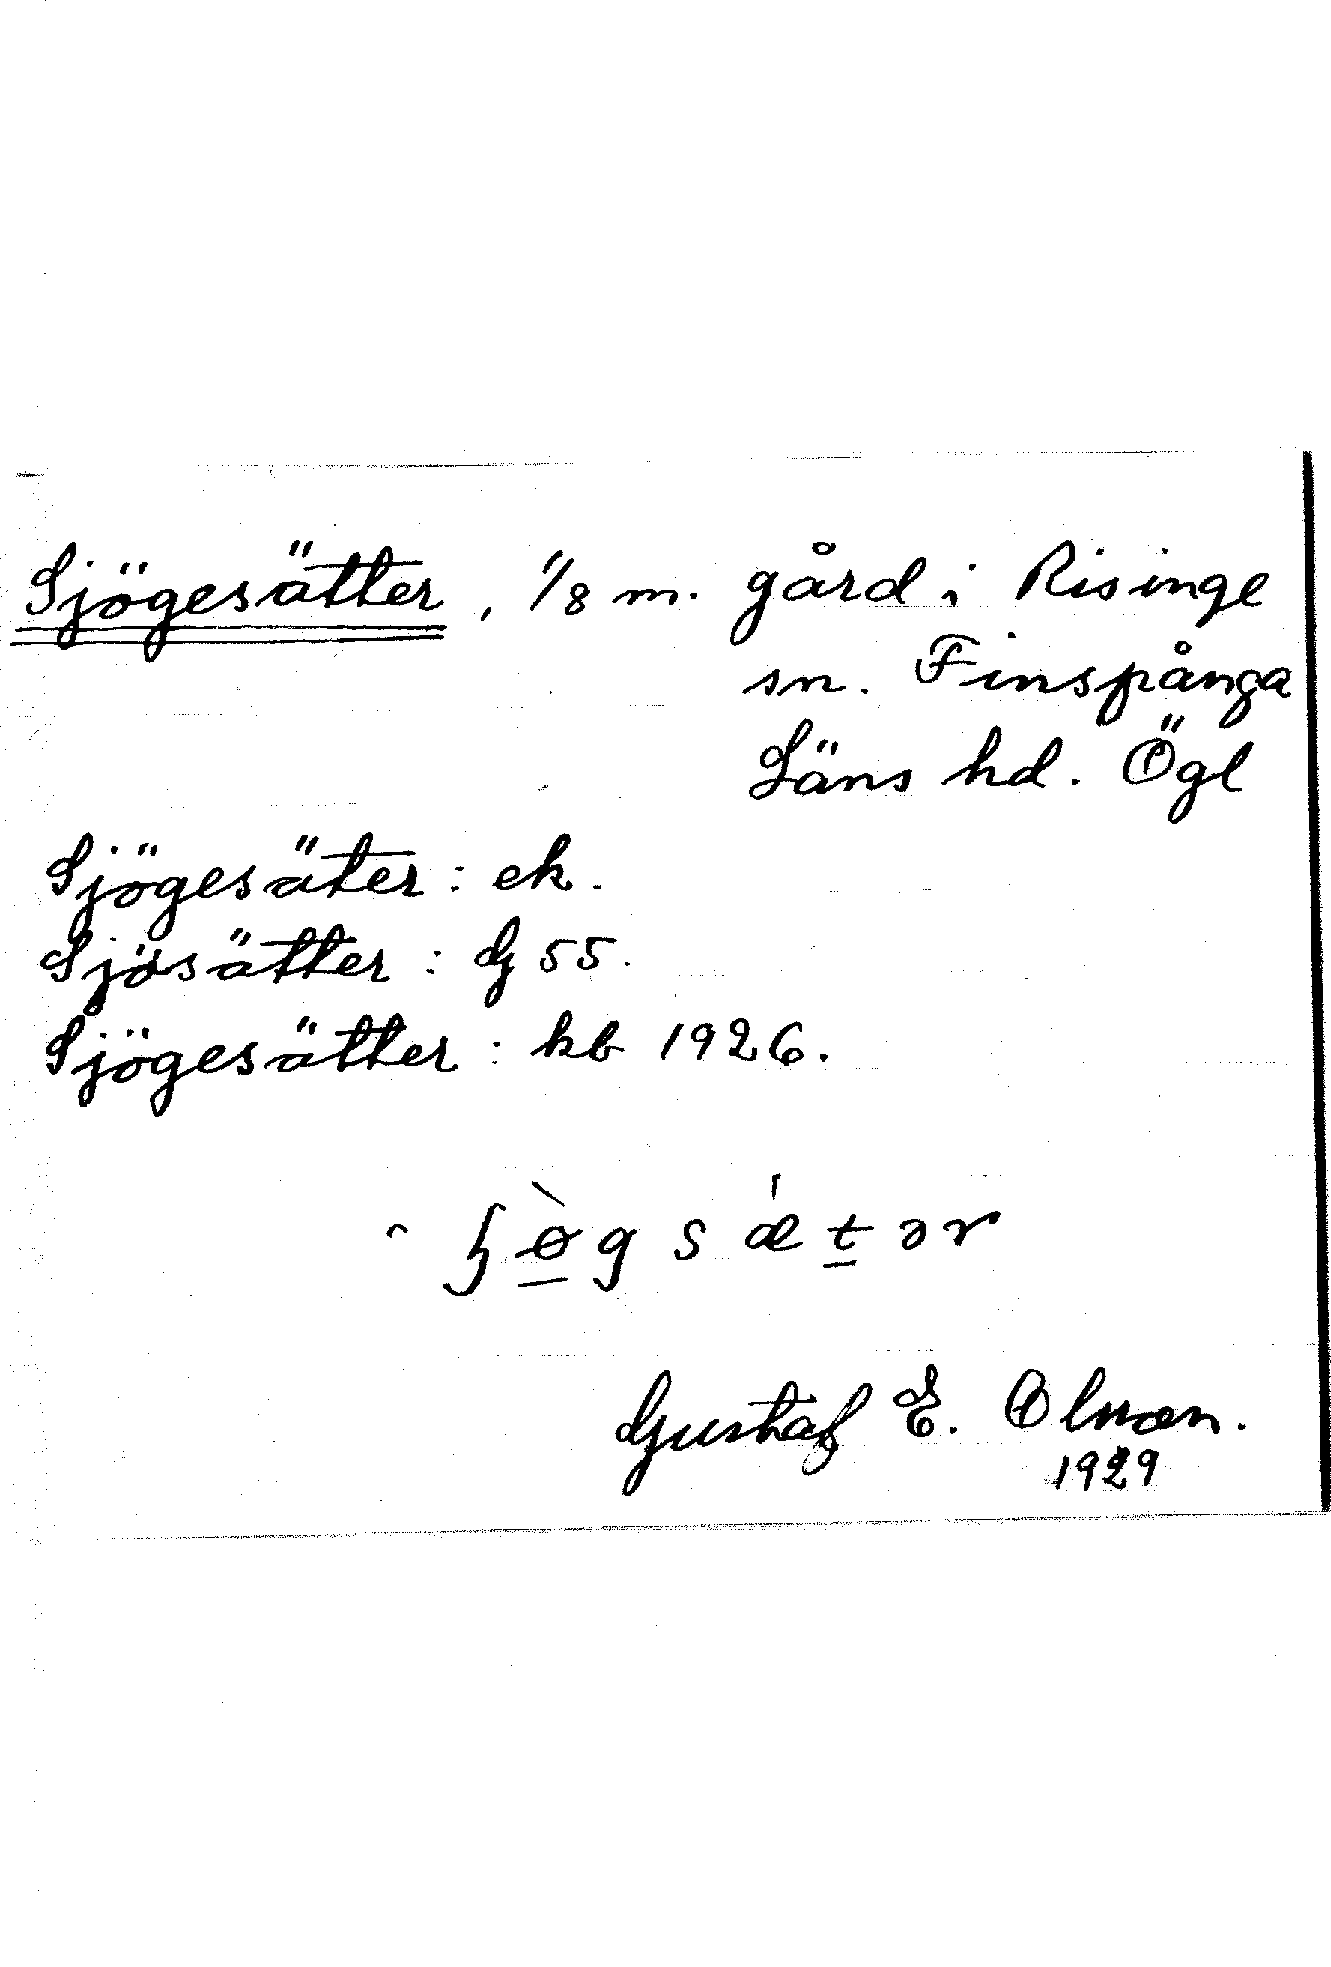 Sjögesätter, 1/8 m. gård i Risinge
sn. Finspånga
Läns hd. Ögl
Sjögesäter: ek.
Sjösätter: G 55.
Sjögesätter: kb 1926.
ʃø̀gsǽtər
Gustaf E. Olsson.
1929